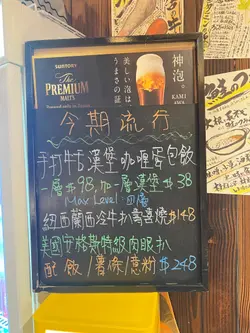 SUNTORY
The
PREMIUM
MALT'S
神泡。
KAMI
AWA
美しい泡は、
うまさの証。
今期流行
手打牛漢堡咖喱蛋包飯
一層$98,加一層漢堡$38
Max Level: 四層
紐西蘭西冷牛扒壽喜燒$148
美國安格斯特級肉眼扒
配飯/薯條/意粉 $248